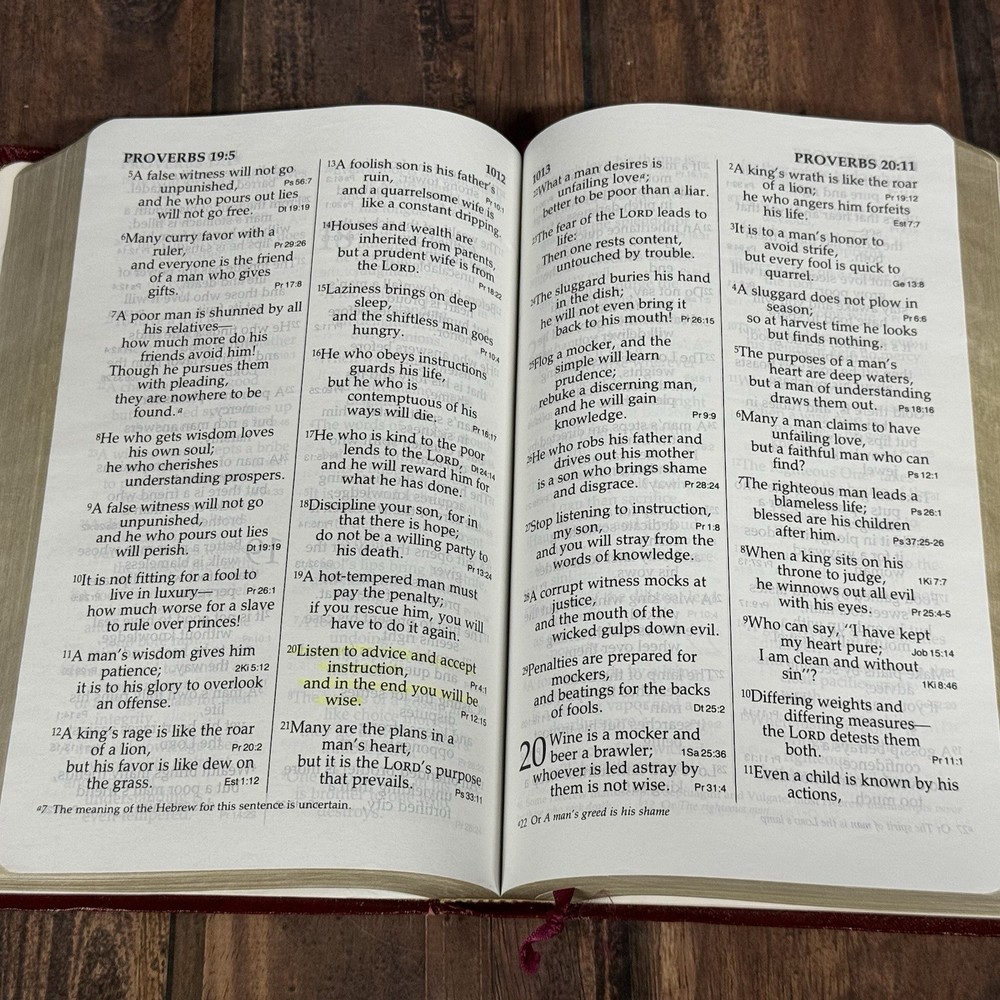 PROVERBS 19:5
1012
⁵A false witness will not go
unpunished, Ps 56:7
and he who pours out lies
will not go free. Dt 19:19
⁶Many curry favor with a
ruler, Pr 29:26
and everyone is the friend
of a man who gives
gifts. Pr 17:8
⁷A poor man is shunned by all
his relatives—
how much more do his
friends avoid him!
Though he pursues them
with pleading,
they are nowhere to be
found.ᵃ
⁸He who gets wisdom loves
his own soul;
he who cherishes
understanding prospers.
⁹A false witness will not go
unpunished,
and he who pours out lies
will perish. Dt 19:19
¹⁰It is not fitting for a fool to
live in luxury— Pr 26:1
how much worse for a slave
to rule over princes!
¹¹A man's wisdom gives him
patience; 2Ki 5:12
it is to his glory to overlook
an offense.
¹²A king's rage is like the roar
of a lion, Pr 20:2
but his favor is like dew on
the grass. Est 1:12
¹³A foolish son is his father's
ruin, Pr 10:1
and a quarrelsome wife is
like a constant dripping.
¹⁴Houses and wealth are
inherited from parents,
but a prudent wife is from
the LORD. Pr 18:22
¹⁵Laziness brings on deep
sleep,
and the shiftless man goes
hungry. Pr 10:4
¹⁶He who obeys instructions
guards his life,
but he who is
contemptuous of his
ways will die. Pr 16:17
¹⁷He who is kind to the poor
lends to the LORD, Dt 24:14
and he will reward him for
what he has done.
¹⁸Discipline your son, for in
that there is hope;
do not be a willing party to
his death. Pr 13:24
¹⁹A hot-tempered man must
pay the penalty;
if you rescue him, you will
have to do it again.
²⁰Listen to advice and accept
instruction, Pr 4:1
and in the end you will be
wise. Pr 12:15
²¹Many are the plans in a
man's heart,
but it is the LORD's purpose
that prevails. Ps 33:11
ᵃ7 The meaning of the Hebrew for this sentence is uncertain.
1013
PROVERBS 20:11
²²What a man desires is
unfailing loveᵃ;
better to be poor than a liar.
²³The fear of the LORD leads to
life:
Then one rests content,
untouched by trouble.
²⁴The sluggard buries his hand
in the dish;
he will not even bring it
back to his mouth! Pr 26:15
²⁵Flog a mocker, and the
simple will learn
prudence;
rebuke a discerning man,
and he will gain
knowledge. Pr 9:9
²⁶He who robs his father and
drives out his mother
is a son who brings shame
and disgrace. Pr 28:24
²⁷Stop listening to instruction,
my son, Pr 1:8
and you will stray from the
words of knowledge.
²⁸A corrupt witness mocks at
justice,
and the mouth of the
wicked gulps down evil.
²⁹Penalties are prepared for
mockers,
and beatings for the backs
of fools. Dt 25:2
20 Wine is a mocker and
beer a brawler; 1Sa 25:36
whoever is led astray by
them is not wise. Pr 31:4
²A king's wrath is like the roar
of a lion; Pr 19:12
he who angers him forfeits
his life. Est 7:7
³It is to a man's honor to
avoid strife,
but every fool is quick to
quarrel. Ge 13:8
⁴A sluggard does not plow in
season; Pr 6:6
so at harvest time he looks
but finds nothing.
⁵The purposes of a man's
heart are deep waters,
but a man of understanding
draws them out. Ps 18:16
⁶Many a man claims to have
unfailing love,
but a faithful man who can
find? Ps 12:1
⁷The righteous man leads a
blameless life; Ps 26:1
blessed are his children
after him. Ps 37:25-26
⁸When a king sits on his
throne to judge, 1Ki 7:7
he winnows out all evil
with his eyes. Pr 25:4-5
⁹Who can say, "I have kept
my heart pure; Job 15:14
I am clean and without
sin"? 1Ki 8:46
¹⁰Differing weights and
differing measures—
the LORD detests them
both. Pr 11:1
¹¹Even a child is known by his
actions,
ᵃ22 Or A man's greed is his shame